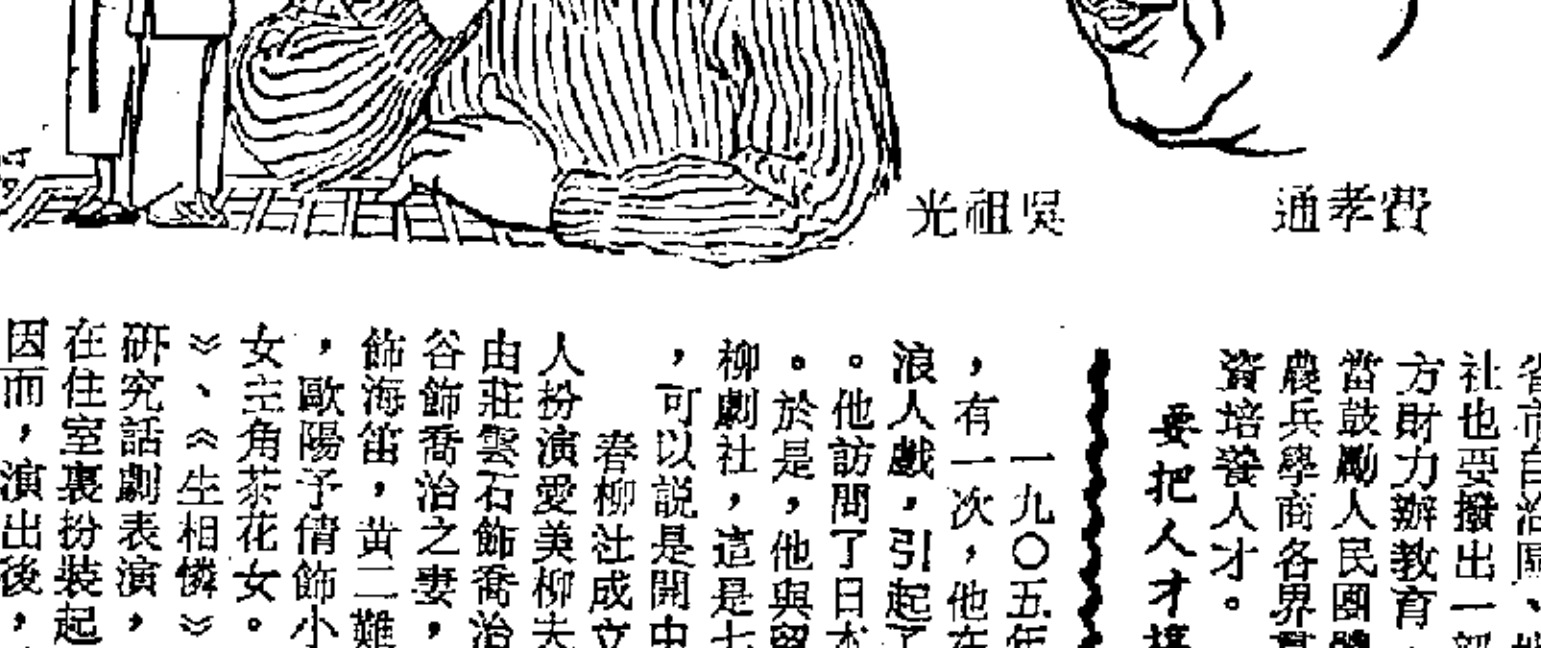 費孝通
吳祖光
省市自治區、
社也要撥出一
方財力辦教育
當鼓勵人民團體
農兵學商各界
資培養人才。
要把人才
一九〇五年
，有一次，他在
浪人戲，引起了
。他訪問了日本
。於是，他與留
柳劇社，這是七
，可以説是開中
春柳社成立
人扮演愛美柳夫
由莊雲石飾喬治
谷飾喬治之妻，
飾海笛，黄二難
，歐陽予倩飾小
女主角茶花女。
》、《生相憐》
研究話劇表演，
在住室裏扮裝起
因而，演出後，